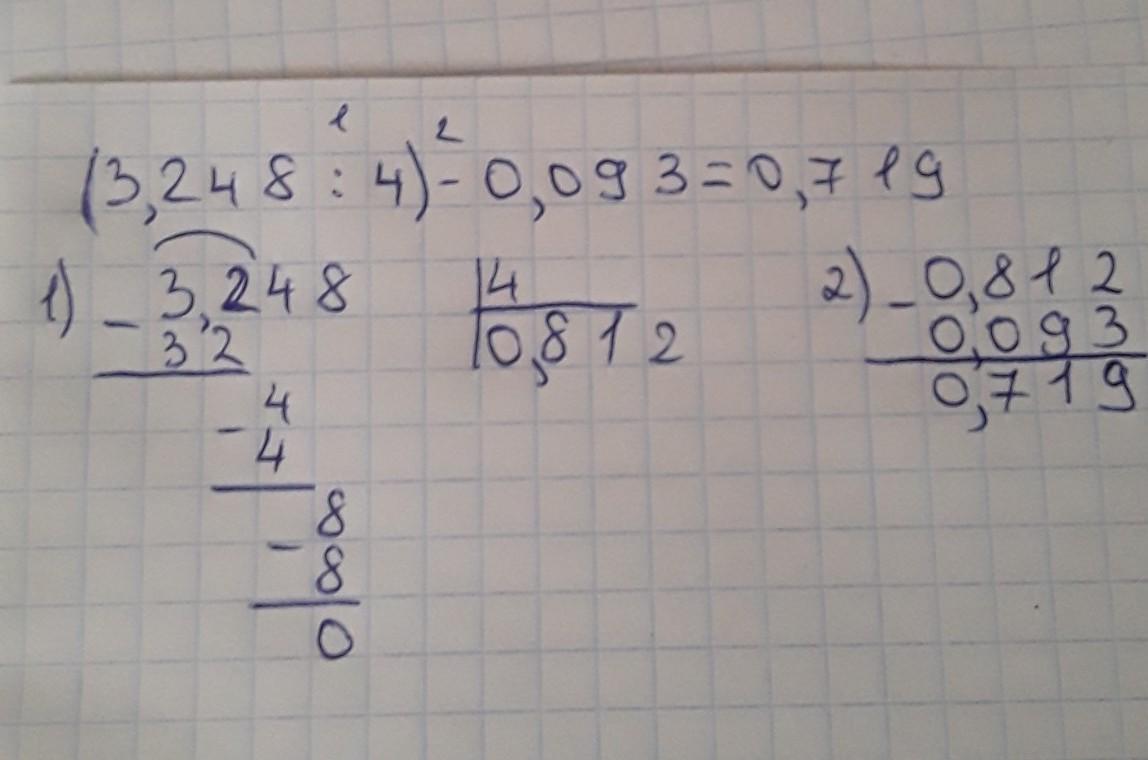 1 2
(3,248 : 4) - 0,093 = 0,719
1) - 3,248 | 4
32 | 0,812
- 4
4
- 8
8
0
2) - 0,812
0,093
0,719